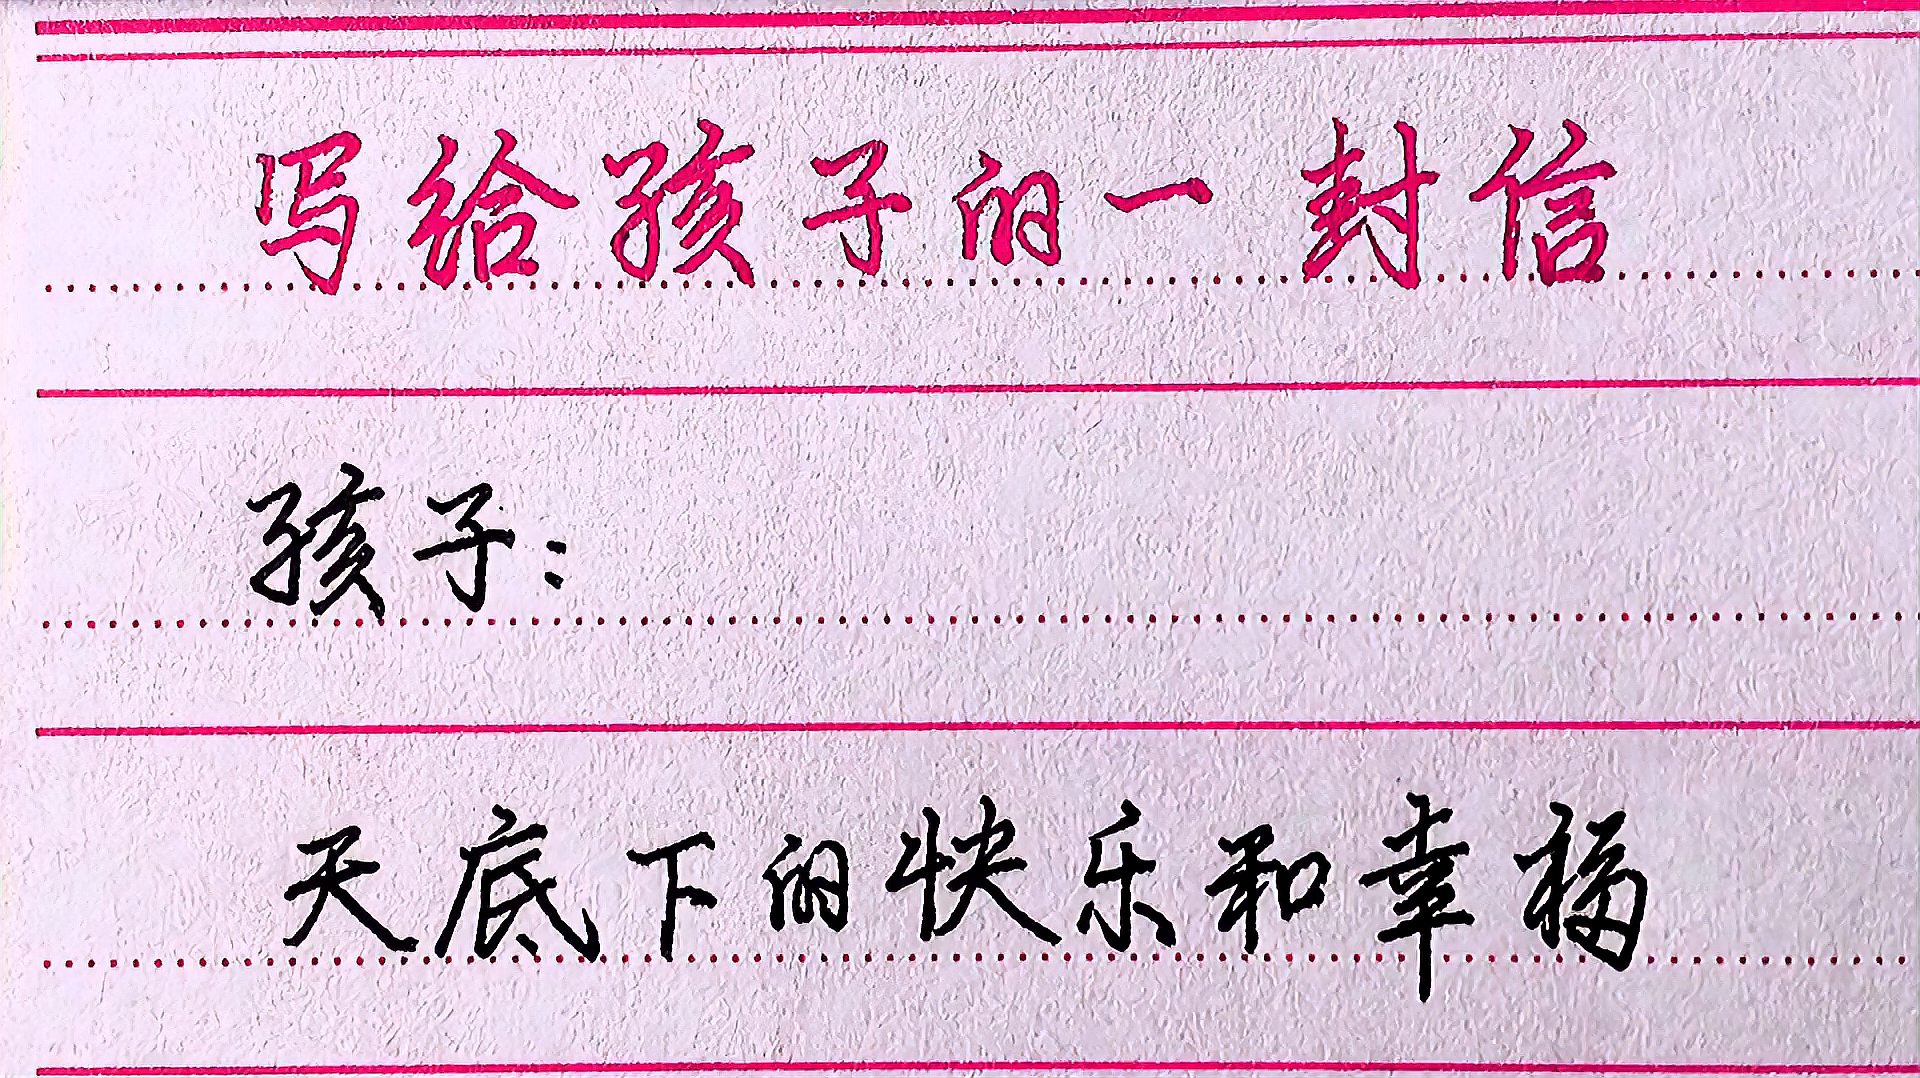 写给孩子的一封信
孩子:
天底下的快乐和幸福